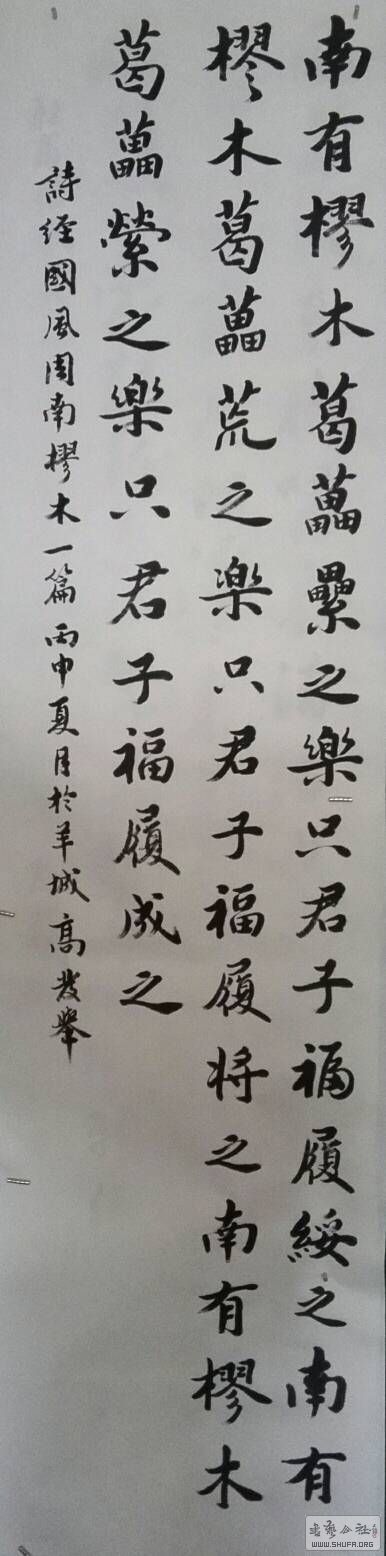 南有樛木葛藟纍之樂只君子福履綏之南有
樛木葛藟荒之楽只君子福履将之南有樛木
葛藟縈之楽只君子福履成之
詩經國風周南樛木一篇丙申夏月於羊城高發舉
书艺公社
WWW.SHUFA.ORG